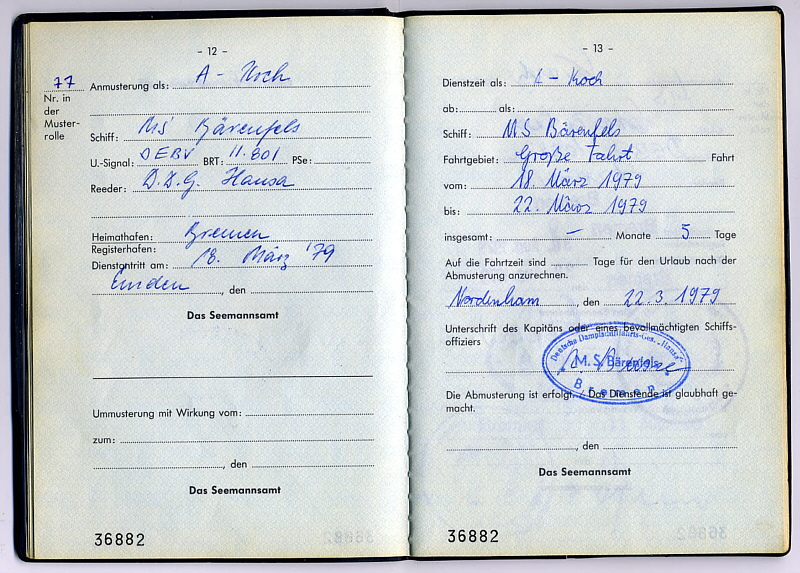 - 12 -
77
Nr. in
der
Muster-
rolle
Anmusterung als: A - Koch
Schiff: MS Bärenfels
U.-Signal: DEBV BRT: 11.801 PSe:
Reeder: D.D.G. Hansa
Heimathafen: Bremen
Registerhafen:
Dienstantritt am: 18. März '79
Emden, den
Das Seemannsamt
Ummusterung mit Wirkung vom:
zum:
, den
Das Seemannsamt
36882
- 13 -
Dienstzeit als: A - Koch
ab: als:
Schiff: MS Bärenfels
Fahrtgebiet: Große Fahrt Fahrt
vom: 18. März 1979
bis: 22. März 1979
insgesamt: - Monate 5 Tage
Auf die Fahrtzeit sind Tage für den Urlaub nach der
Abmusterung anzurechnen.
Nordenham, den 22.3.1979
Unterschrift des Kapitäns oder eines bevollmächtigten Schiffs-
offiziers
Deutsche Dampfschifffahrts-Ges. „Hansa"
M.S. Bärenfels
Bremen
Die Abmusterung ist erfolgt. Das Dienstende ist glaubhaft ge-
macht.
, den
Das Seemannsamt
36882